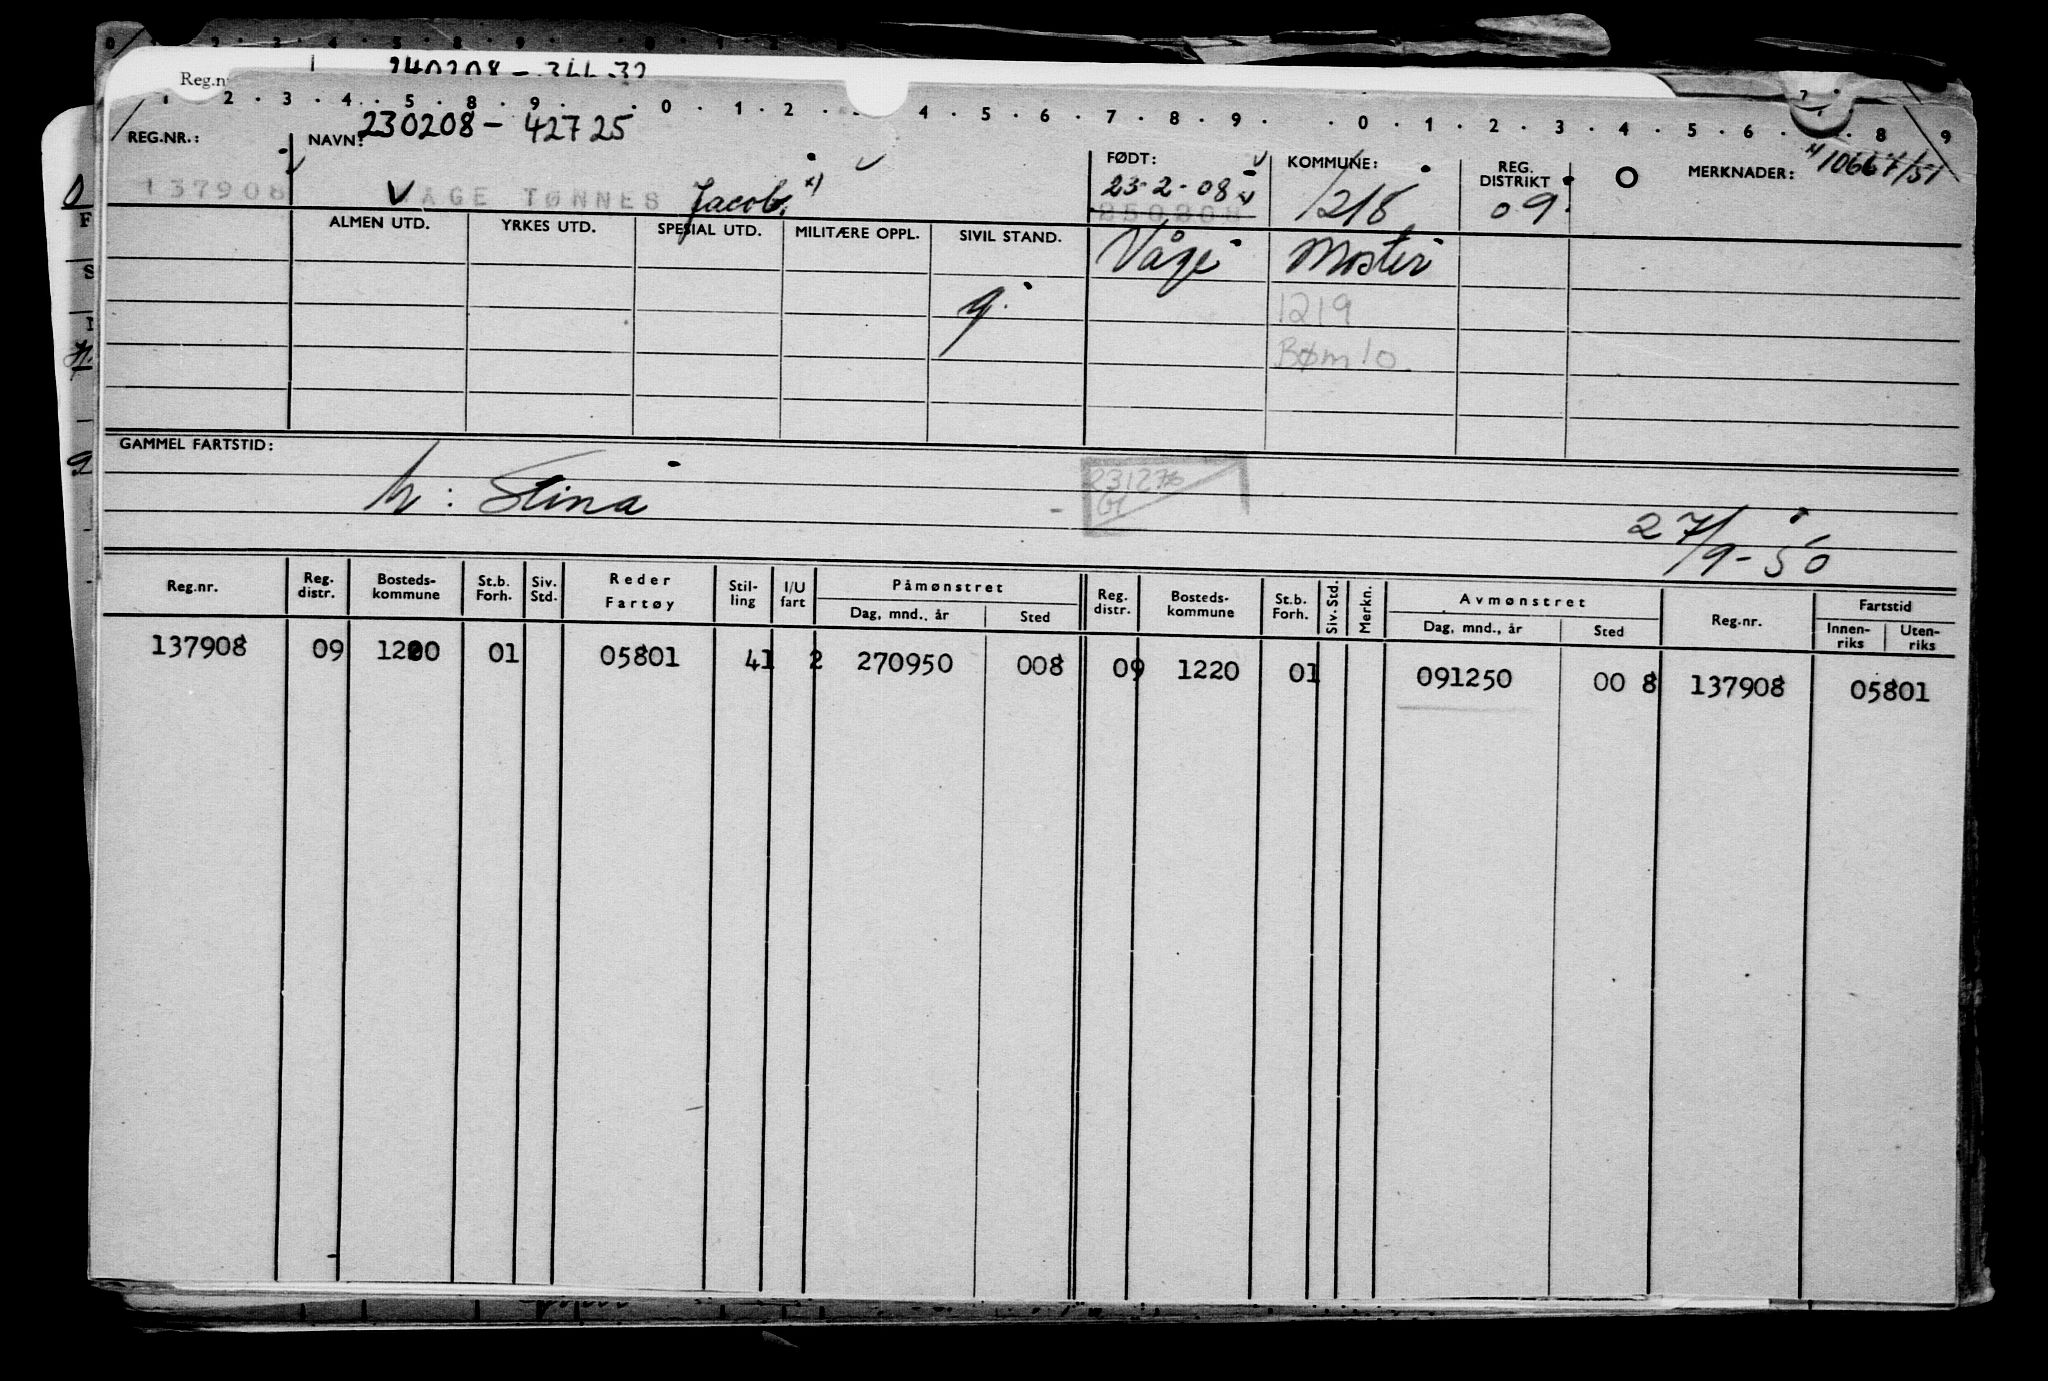 Reg.n
1 · 2 · 3 · 4 · 5 · 8 · 9 · 0 · 1 · 2 · 3 4 · 5 · 6 · 7 · 8 · 9 · 0 · 1 · 2 · 3 · 4 · 5 · 6 · 8 · 9
230208 - 42725
REG.NR.: NAVN: FØDT: KOMMUNE: REG. DISTRIKT MERKNADER: 10667/51
137908 VÅGE TØNNES Jacob. x) 23-2-08 x) 1218 09
250208
ALMEN UTD. YRKES UTD. SPESIAL UTD. MILITÆRE OPPL. SIVIL STAND. Våge Moster
g. 1219
Bømlo
GAMMEL FARTSTID:
M: Stina 231276
27/9-50
Reg.nr. Reg. distr. Bosteds-kommune St.b. Forh. Siv. Std. Reder Fartøy Stil-ling I/U fart Påmønstret Reg. distr. Bosteds-kommune St.b. Forh. Siv. Std. Merkn. Avmønstret Reg.nr. Fartstid
Dag, mnd., år Sted Dag, mnd., år Sted Innen-riks Uten-riks
137908 09 1220 01 05801 41 2 270950 008 09 1220 01 091250 00 8 137908 05801